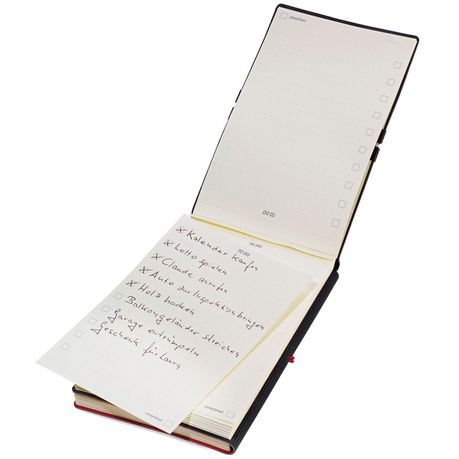 completed
TO DO
TO DO
TO DO
x Kalender kaufen
x Lotto spielen
x Claude anrufen
x Auto zur Inspektion bringen
x Holz hacken
Balkongeländer streichen
Garage entrümpeln
Geschenk für Laura
completed
completed